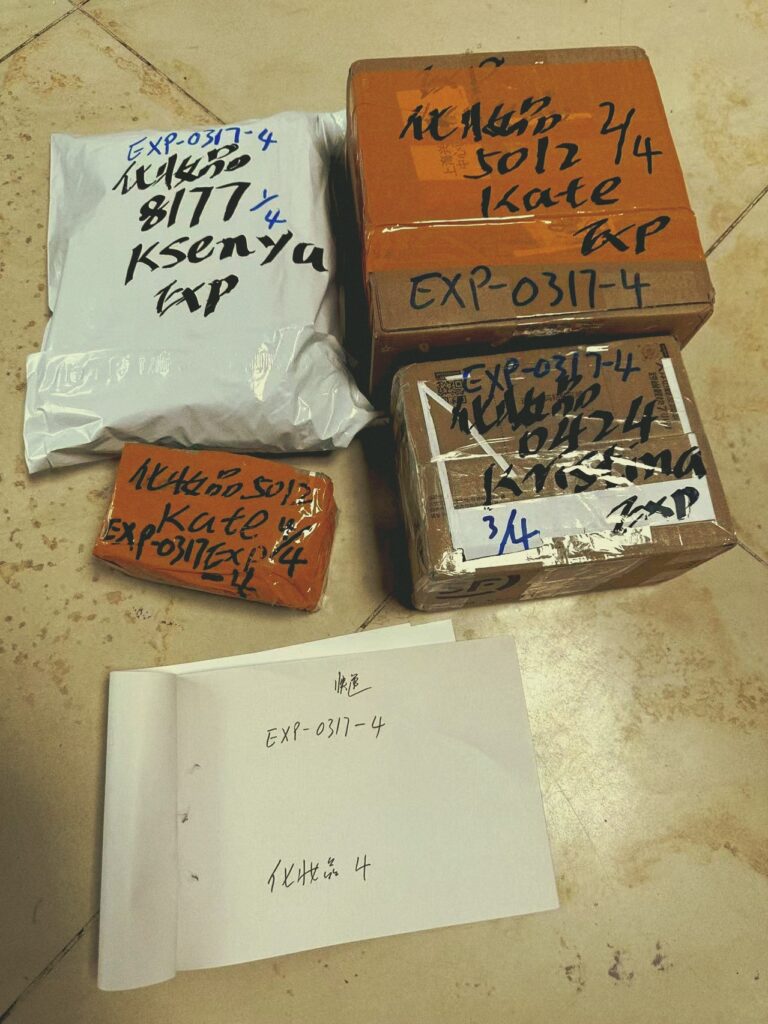 EXP-0317-4
化妆品
8177 1/4
Ksenya
EXP
化妆品 2/4
5012
Kate
EXP
EXP-0317-4
EXP-0317-4
化妆品
0424
Kristina
EXP
3/4
化妆品 5012
Kate 4/4
EXP-0317 EXP
-4
快递
EXP-0317-4
化妆品 4